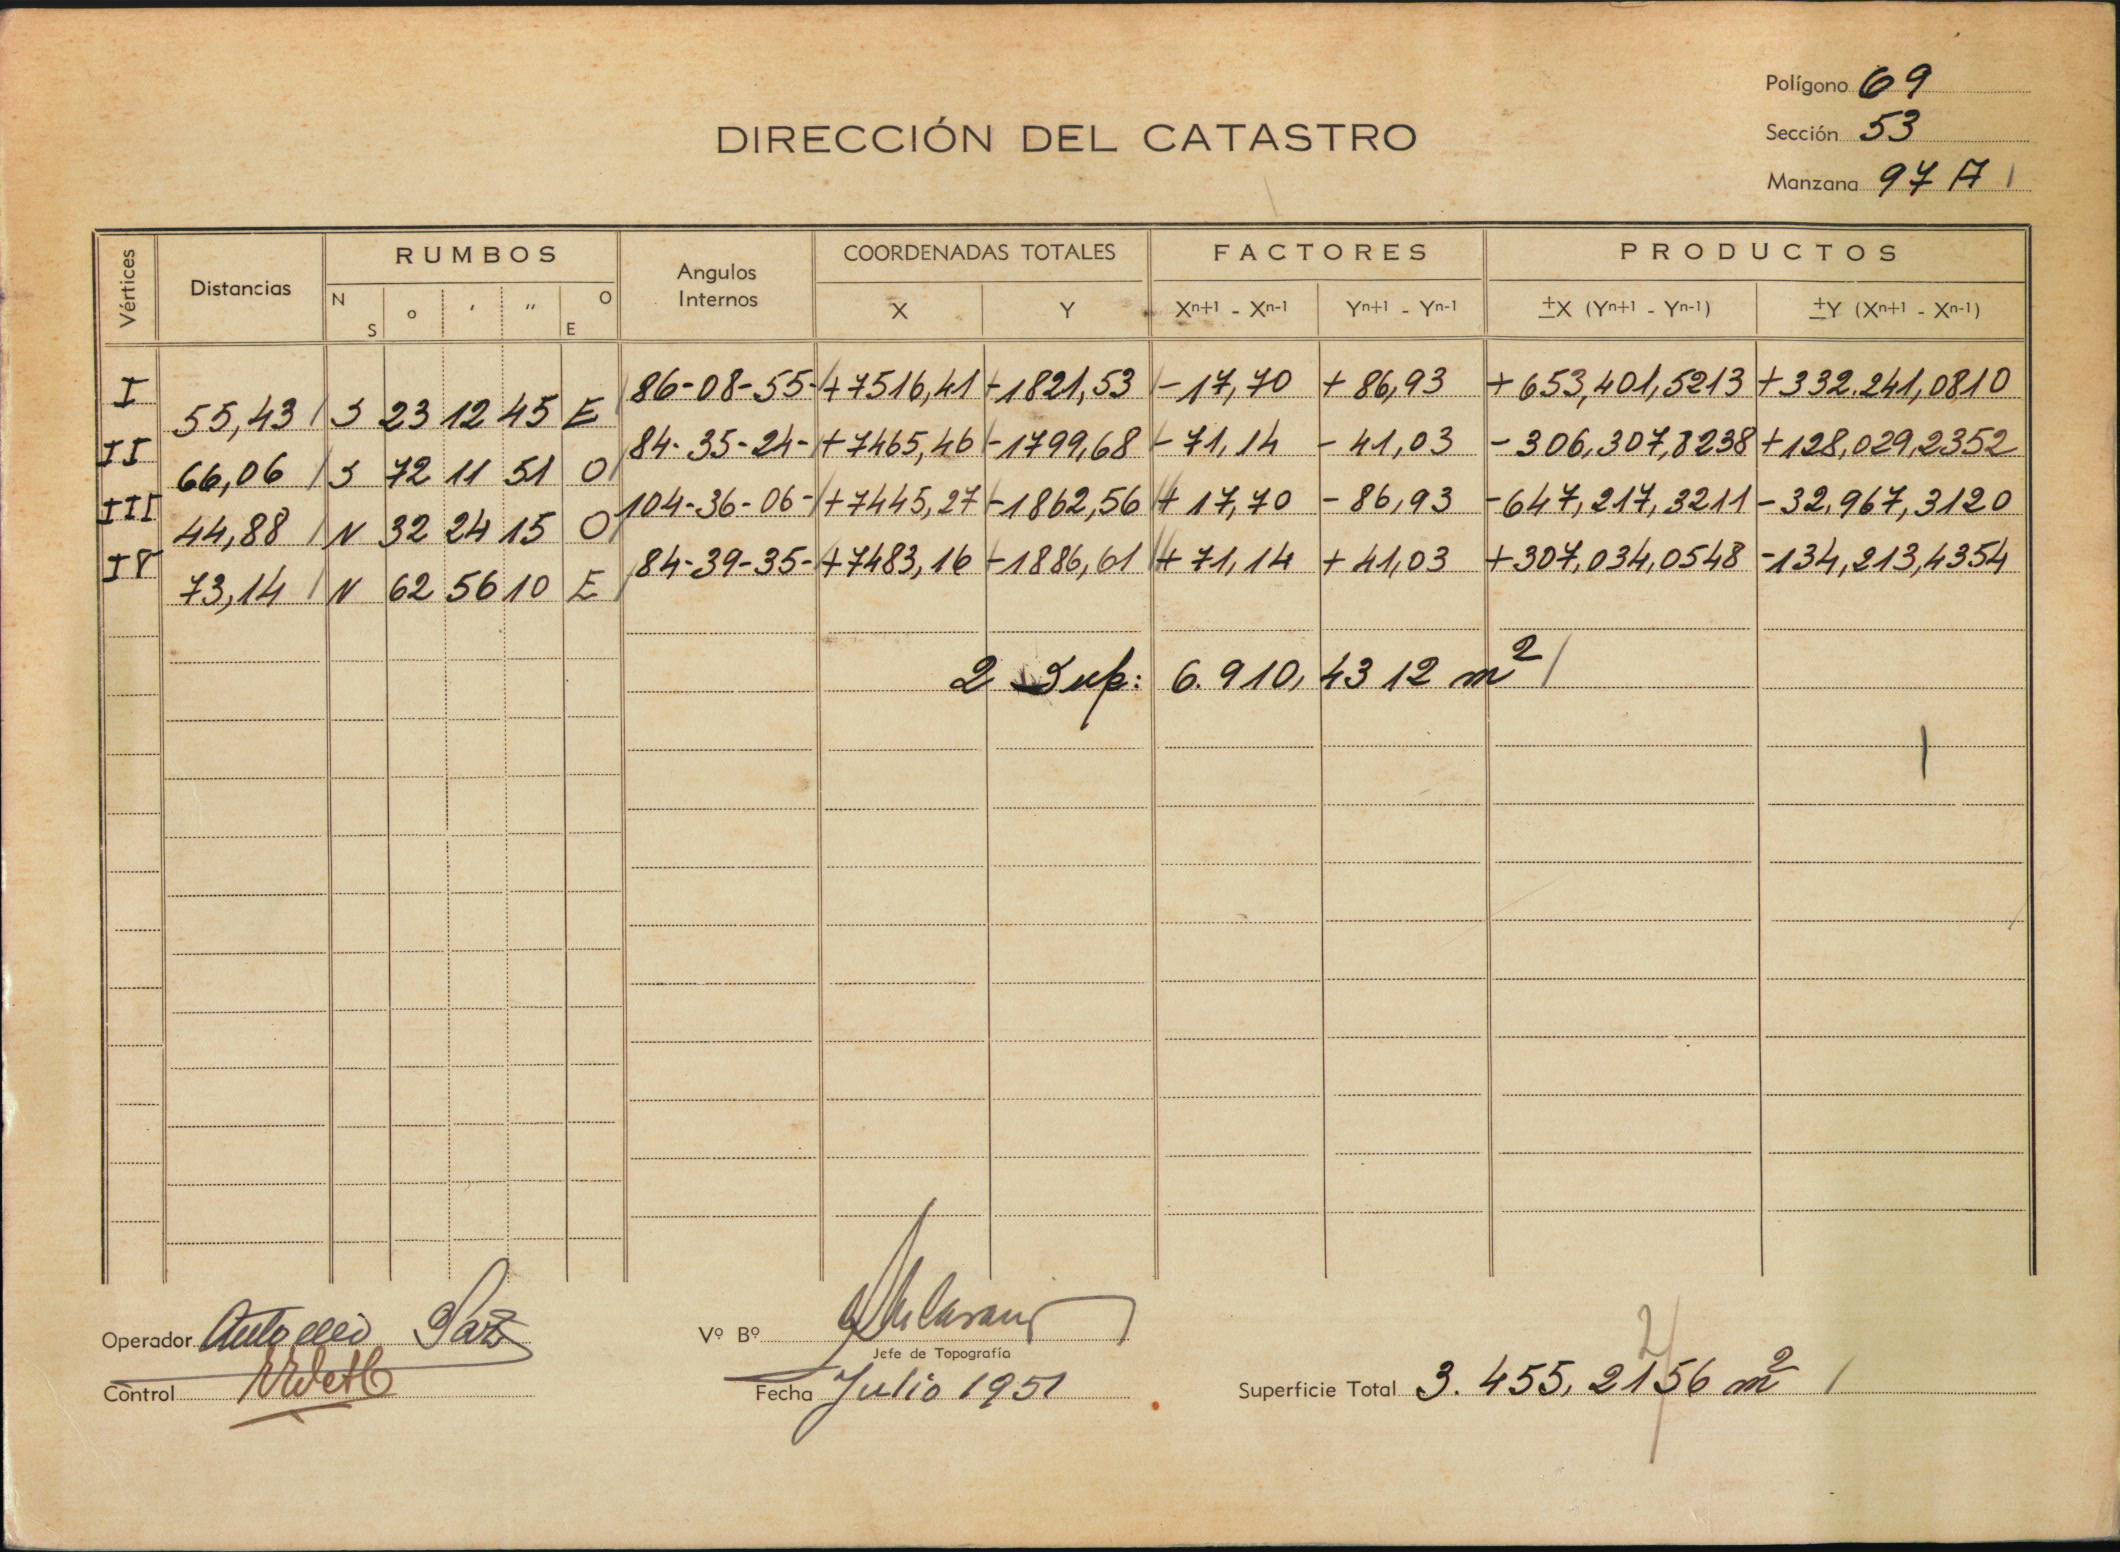 Polígono 69
DIRECCIÓN DEL CATASTRO
Sección 53
Manzana 97 A
Vértices Distancias RUMBOS N S o ' " O E Angulos Internos COORDENADAS TOTALES X Y FACTORES Xn+1 - Xn-1 Yn+1 - Yn-1 PRODUCTOS ±X (Yn+1 - Yn-1) ±Y (Xn+1 - Xn-1)
I 86-08-55- +7516,41 -1821,53 -17,70 +86,93 +653,401,5213 +332.241,0810
55,43 S 23 12 45 E
II 84-35-24- +7465,46 -1799,68 -71,14 -41,03 -306,307,8238 +128,029,2352
66,06 S 72 11 51 O
III 104-36-06- +7445,27 -1862,56 +17,70 -86,93 -647,217,3211 -32,967,3120
44,88 N 32 24 15 O
IV 84-39-35- +7483,16 -1886,61 +71,14 +41,03 +307,034,0548 -134,213,4354
73,14 N 62 56 10 E
2 Sup: 6.910,4312 m²
Operador Antonio Paz Vº Bº
Jefe de Topografía
Control Fecha Julio 1951 Superficie Total 3.455,2156 m²